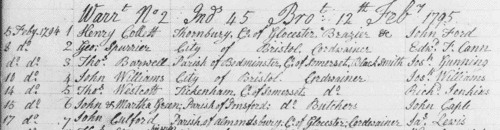 Warrt. No. 2 Ind 45 Brot. 12th Feby 1795
5 Feby. 1794 1 Henry Collett Thornbury, C. of Glocester Brazier &c John Ford
8 do 2 Geo: Spurrier City of Bristol Cordwainer Edwd. T. Cann
do do 3 Thos. Barwell Parish of Bedminster, C. of Somerset, Blacksmith Jos: Gunning
10 do 4 John Williams City of Bristol Cordwainer Jos: Williams
14 do 5 Thos. Westcott Tickenham, C. of Somerset do Richd. Jenkins
15 do 6 John & Martha Green; Parish of Do Butchers John Cable
17 do 7 John Parish of Almondsbury; C. of Glocester; Cordwainer Jas. Lewis